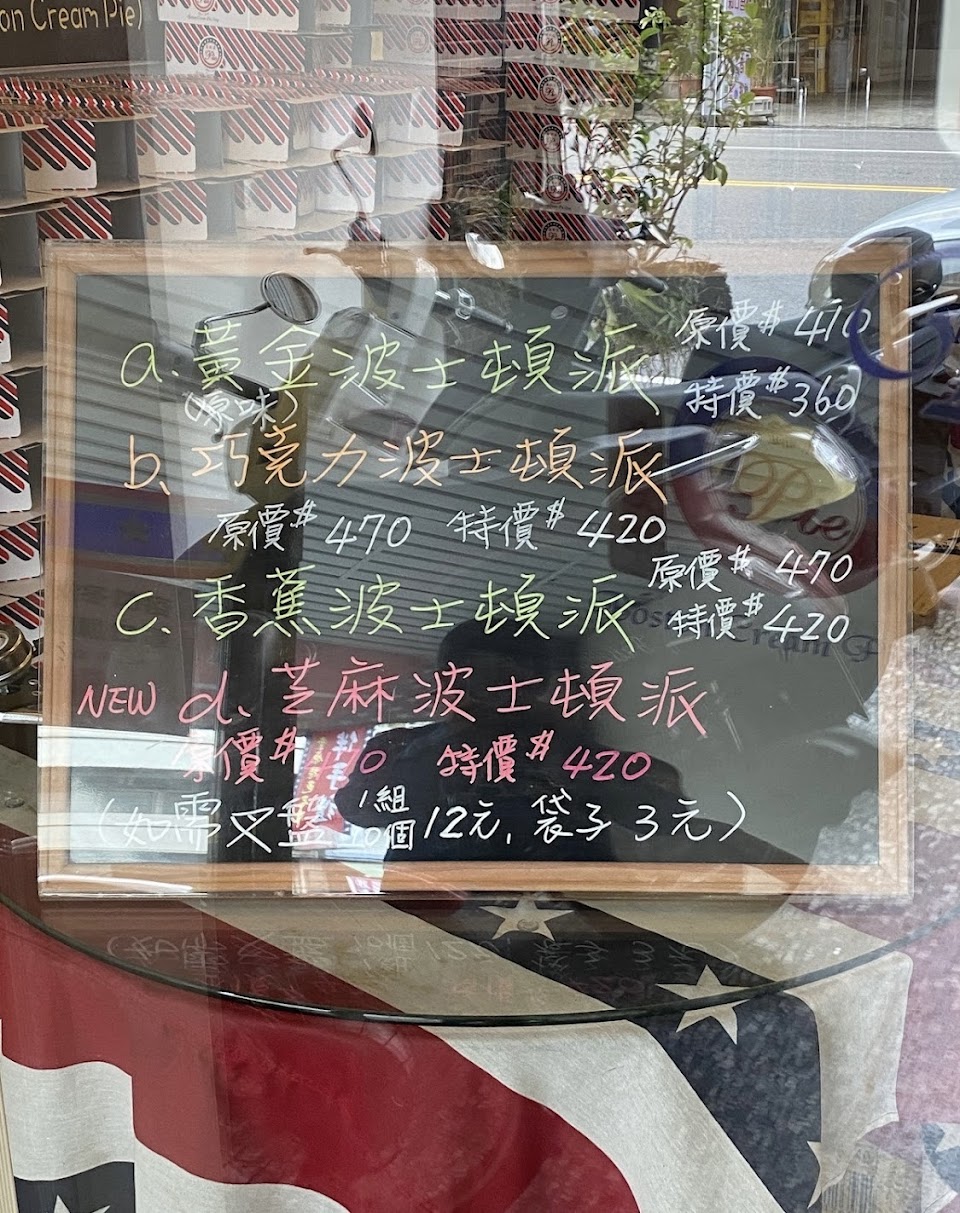 on Cream Pie)
a. 黃金波士頓派 原價$ 410
(原味) 特價$ 360
b. 巧克力波士頓派
原價$ 470 特價$ 420
c. 香蕉波士頓派 原價$ 470
特價$ 420
NEW d. 芝麻波士頓派
原價$ 特價$ 420
(如需叉盤 1組10個 12元, 袋子 3元)
Pie